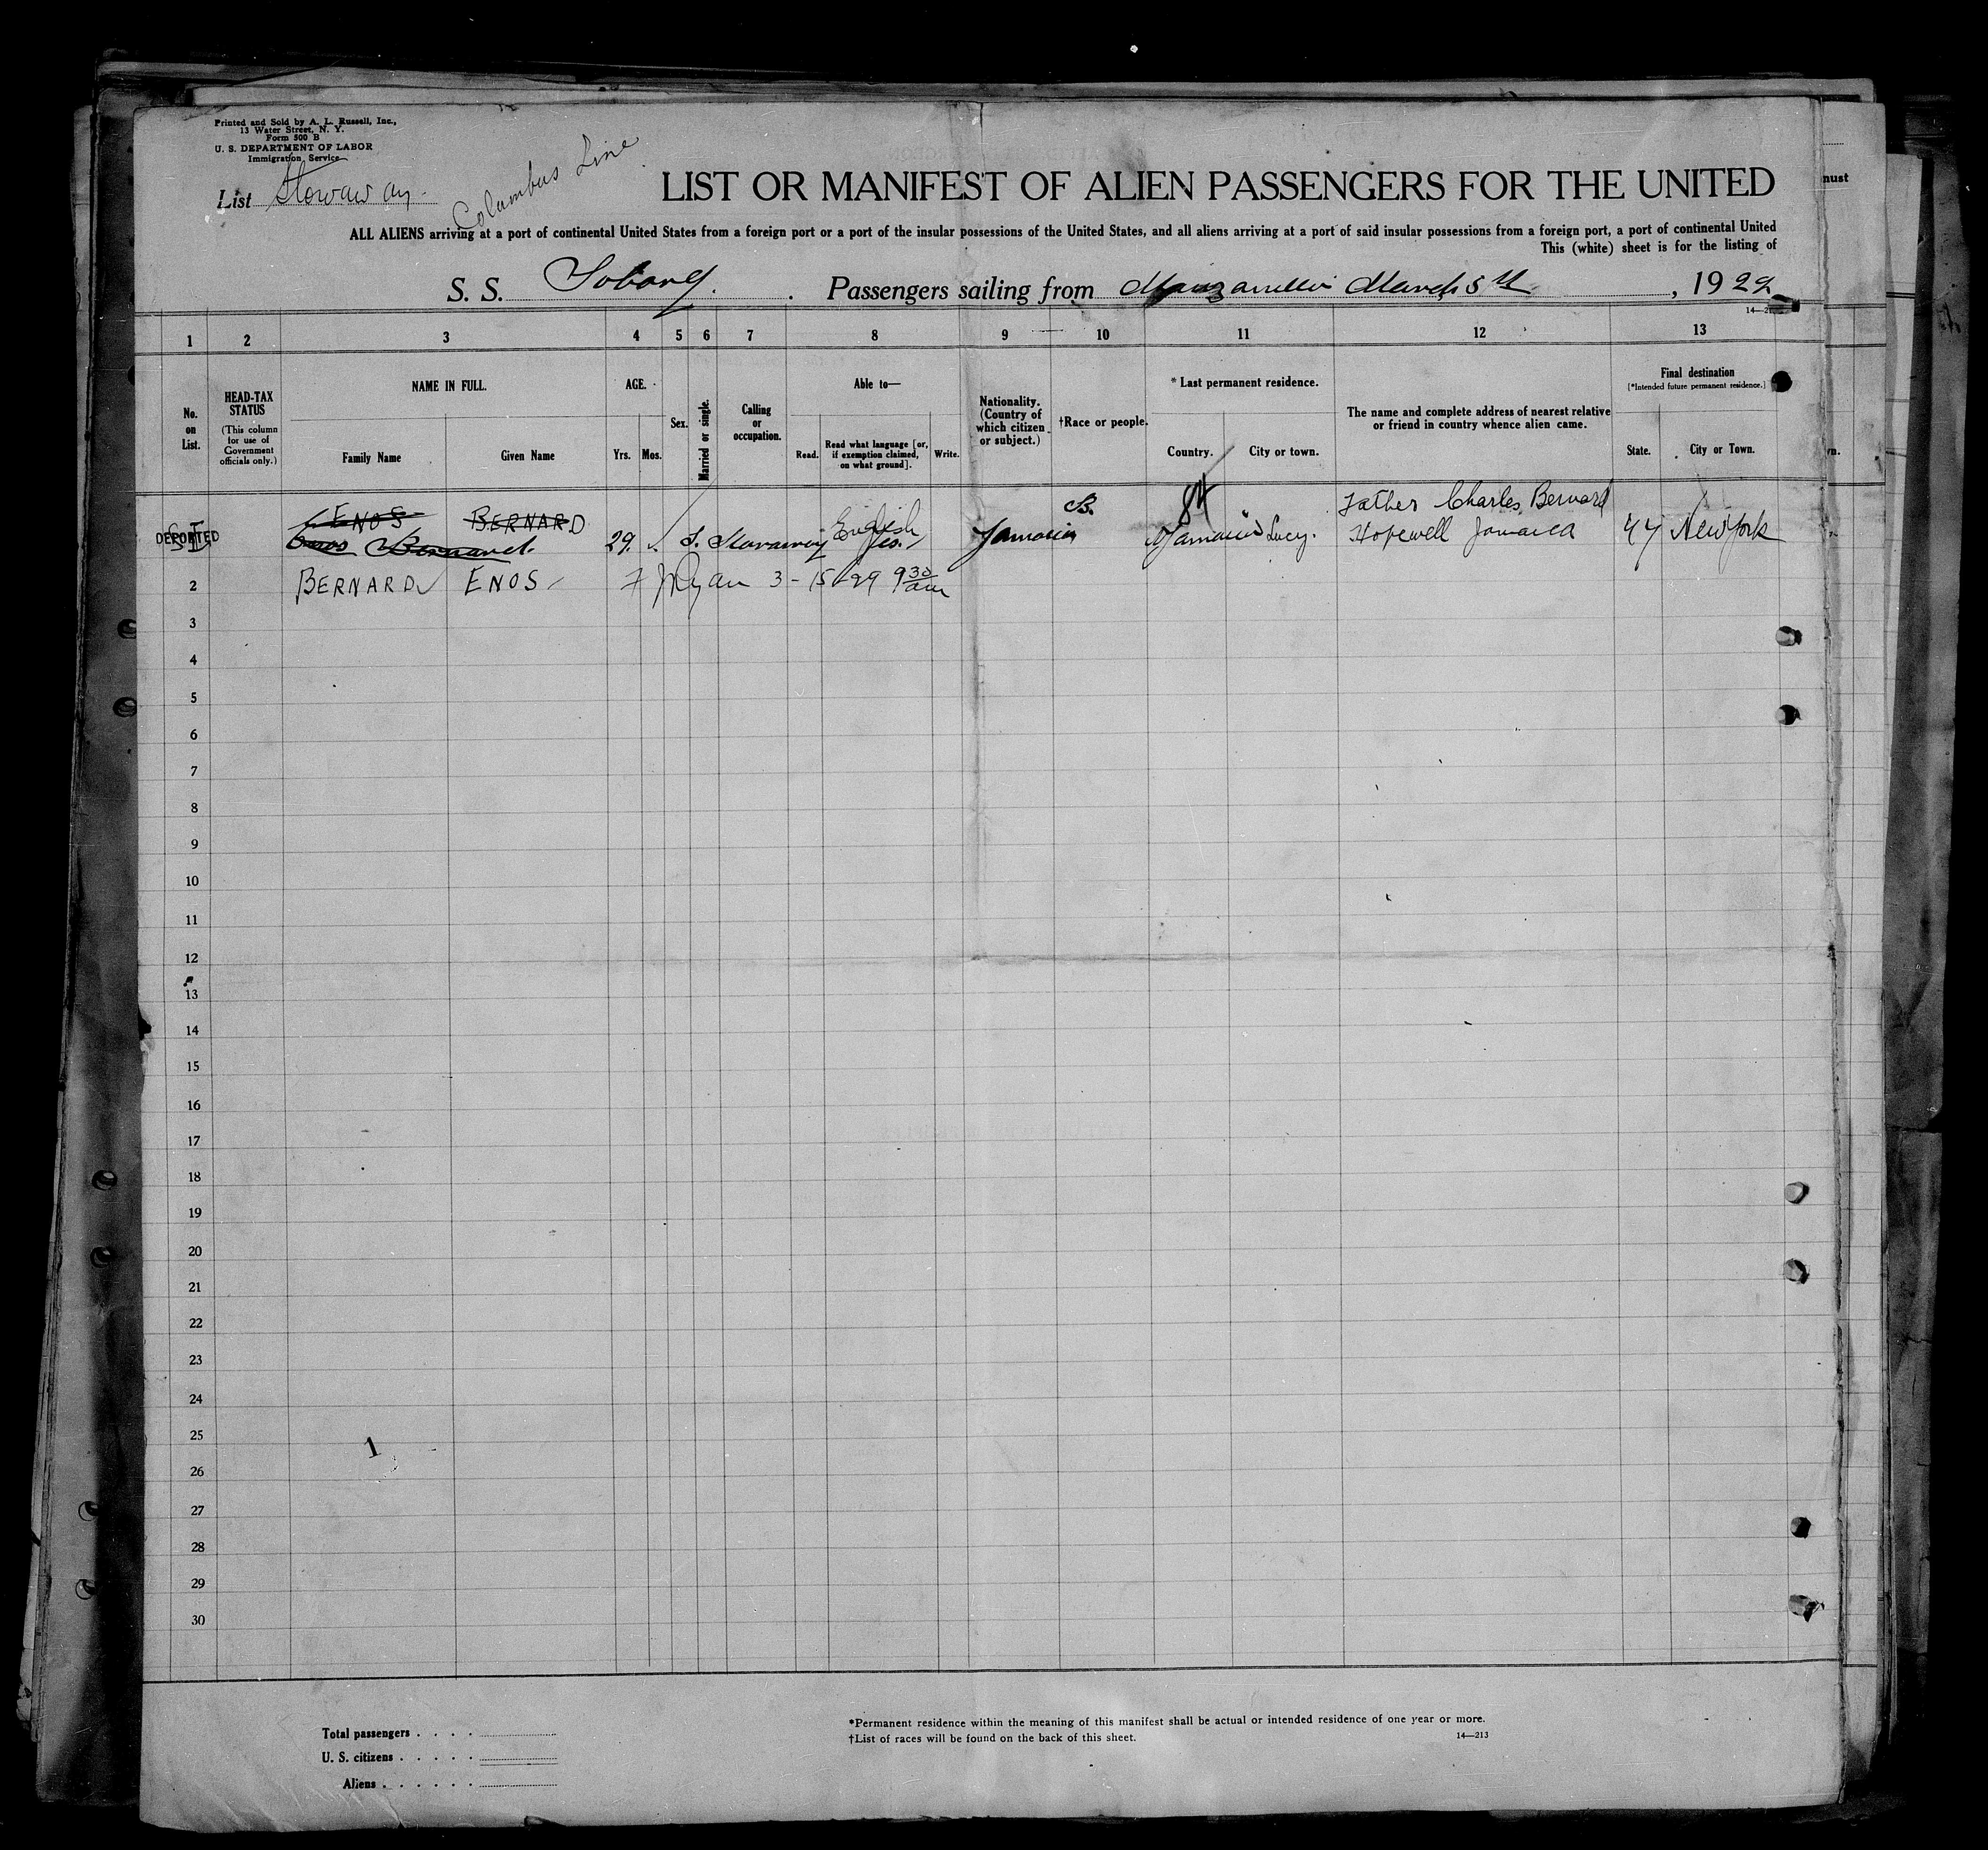 Printed and Sold by A. L. Russell, Inc.,
13 Water Street, N. Y.
Form 500 B
U. S. DEPARTMENT OF LABOR
Immigration Service
List Stowaway
Columbus Line
LIST OR MANIFEST OF ALIEN PASSENGERS FOR THE UNITED
ALL ALIENS arriving at a port of continental United States from a foreign port or a port of the insular possessions of the United States, and all aliens arriving at a port of said insular possessions from a foreign port, a port of continental United
This (white) sheet is for the listing of
S. S. Passengers sailing from March 5th, 1929
14—21
1 2 3 4 5 6 7 8 9 10 11 12 13
No. on List.
HEAD-TAX STATUS
(This column for use of Government officials only.)
NAME IN FULL.
Family Name
Given Name
AGE.
Yrs.
Mos.
Sex.
Married or single.
Calling or occupation.
Able to—
Read.
Read what language [or, if exemption claimed, on what ground].
Write.
Nationality. (Country of which citizen or subject.)
†Race or people.
*Last permanent residence.
Country.
City or town.
The name and complete address of nearest relative or friend in country whence alien came.
Final destination
[*Intended future permanent residence.]
State.
City or Town.
must
DEPORTED
ENOS BERNARD
Enos Bernard. 29. S. Stowaway English Yes. Jamaica B. 84 Jamaica Lucy.
Father Charles Bernard
Hopewell Jamaica
NewYork
2 BERNARD ENOS Ryan 3-15-29 9 30 am
3
4
5
6
7
8
9
10
11
12
13
14
15
16
17
18
19
20
21
22
23
24
25
1
26
27
28
29
30
Total passengers
U. S. citizens
Aliens
*Permanent residence within the meaning of this manifest shall be actual or intended residence of one year or more.
†List of races will be found on the back of this sheet.
14—213